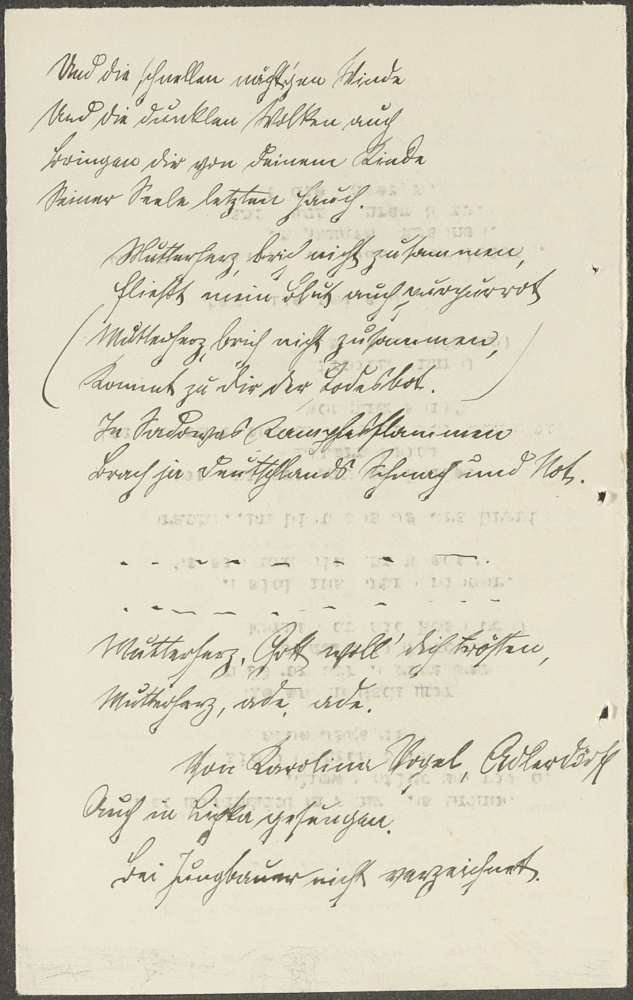 Und die schnellen nächt'gen Winde
Und die dunklen Wolken auch
Bringen dir von deinem Kinde
Seiner Seele letzten Hauch.
Mutterherz, brich nicht zusammen,
fließt mein Blut auch purpurrot
(Mutterherz, brich nicht zusammen,
Kommt zu dir der Todesbot.)
In Sadowas Kampfesflammen
Brach ja Deutschlands Schmach und Not.
Mutterherz, Gott woll' dich trösten,
Mutterherz, ade, ade.
Von Karolina Vogel, Adlerdörfl
Auch in gesungen.
Bei Jungbauer nicht verzeichnet.